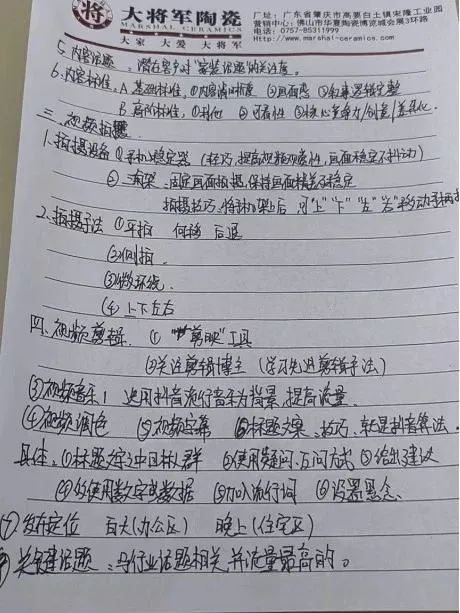 大将军陶瓷
MARSHAL CERAMICS
大家 大爱 大将军
厂址:广东省肇庆市高要白土镇宋隆工业园
营销中心:佛山市华夏陶瓷博览城会展3号馆
电话:0757-85311999
http://www.marshal-ceramics.com
5.内容话题、潜在客户对"家装话题的关注度。
6.内容标准,A 基础标准,①内容清晰度 ②画面感 ③叙事逻辑完整
B.高阶标准,①利他 ②可看性 ③核心竞争力/创意/差异化.
三、视频拍摄
1.拍摄设备 ①手机稳定器(轻巧,提高视频观赏性,画面稳定不抖动)
②三脚架、固定画面拍摄,保持画面精美不稳定
拍摄技巧、将手机架上后 可"上""下""左""右"移动手柄拍
2.拍摄手法 ①平拍 后退
(2)侧拍
(3)做环绕.
(4)上下左右
四.视频剪辑. ① "剪映"工具
②关注剪辑博主(学习先进剪辑手法)
③视频音乐! 选用抖音流行音乐为背景,提高流量.
④视频调色 ⑤视频字幕 ⑥标题文案、技巧、就是抖音算法.
具体.①标题文字中目标人群 ②使用疑问、反问方式 ③给出建议
④巧使用数字或数据 ⑤加入流行词 ⑥设置悬念.
⑦发布定位 白天(办公区) 晚上(住宅区)
关键话题、与行业话题相关,并流量最高的。